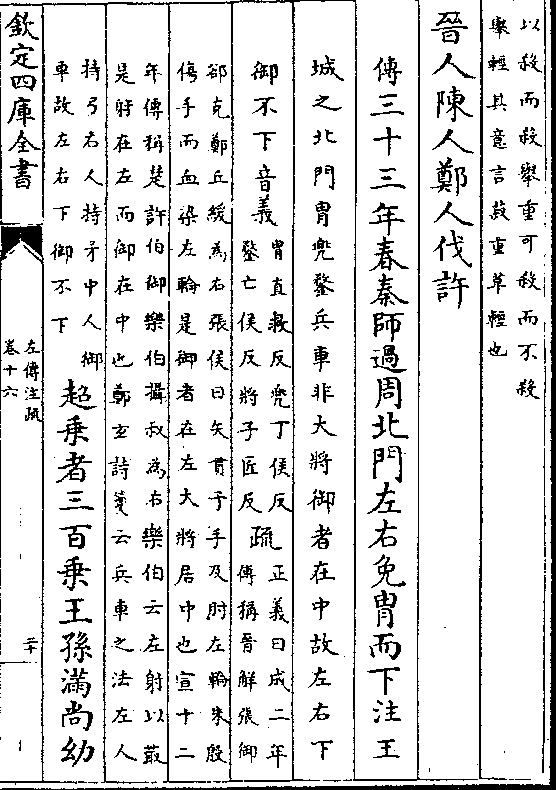 以殺而殺舉重可殺而不殺
舉輕其意言菽重草輕也
晉人陳人鄭人伐許
傳三十三年春秦師過周北門左右免胄而下注王
城之北門胄兜鍪兵車非大將御者在中故左右下
御不下音義
胄直救反兜丁侯反
鍪亡侯反將子匠反
疏
正義曰成二年
傳稱晉解張御
郤克鄭丘緩為右張侯曰矢貫于手及肘左輪朱殷
傷手而血染左輪是御者在左大將居中也宣十二
年傳稱楚許伯御樂伯攝叔為右樂伯云左射以菆
是射在左而御在中也鄭玄詩箋云兵車之法左人
持弓右人持矛中人御
車故左右下御不下
超乗者三百乗王孫滿尚幼
欽定四庫全書
左傳注疏
卷十六
二十